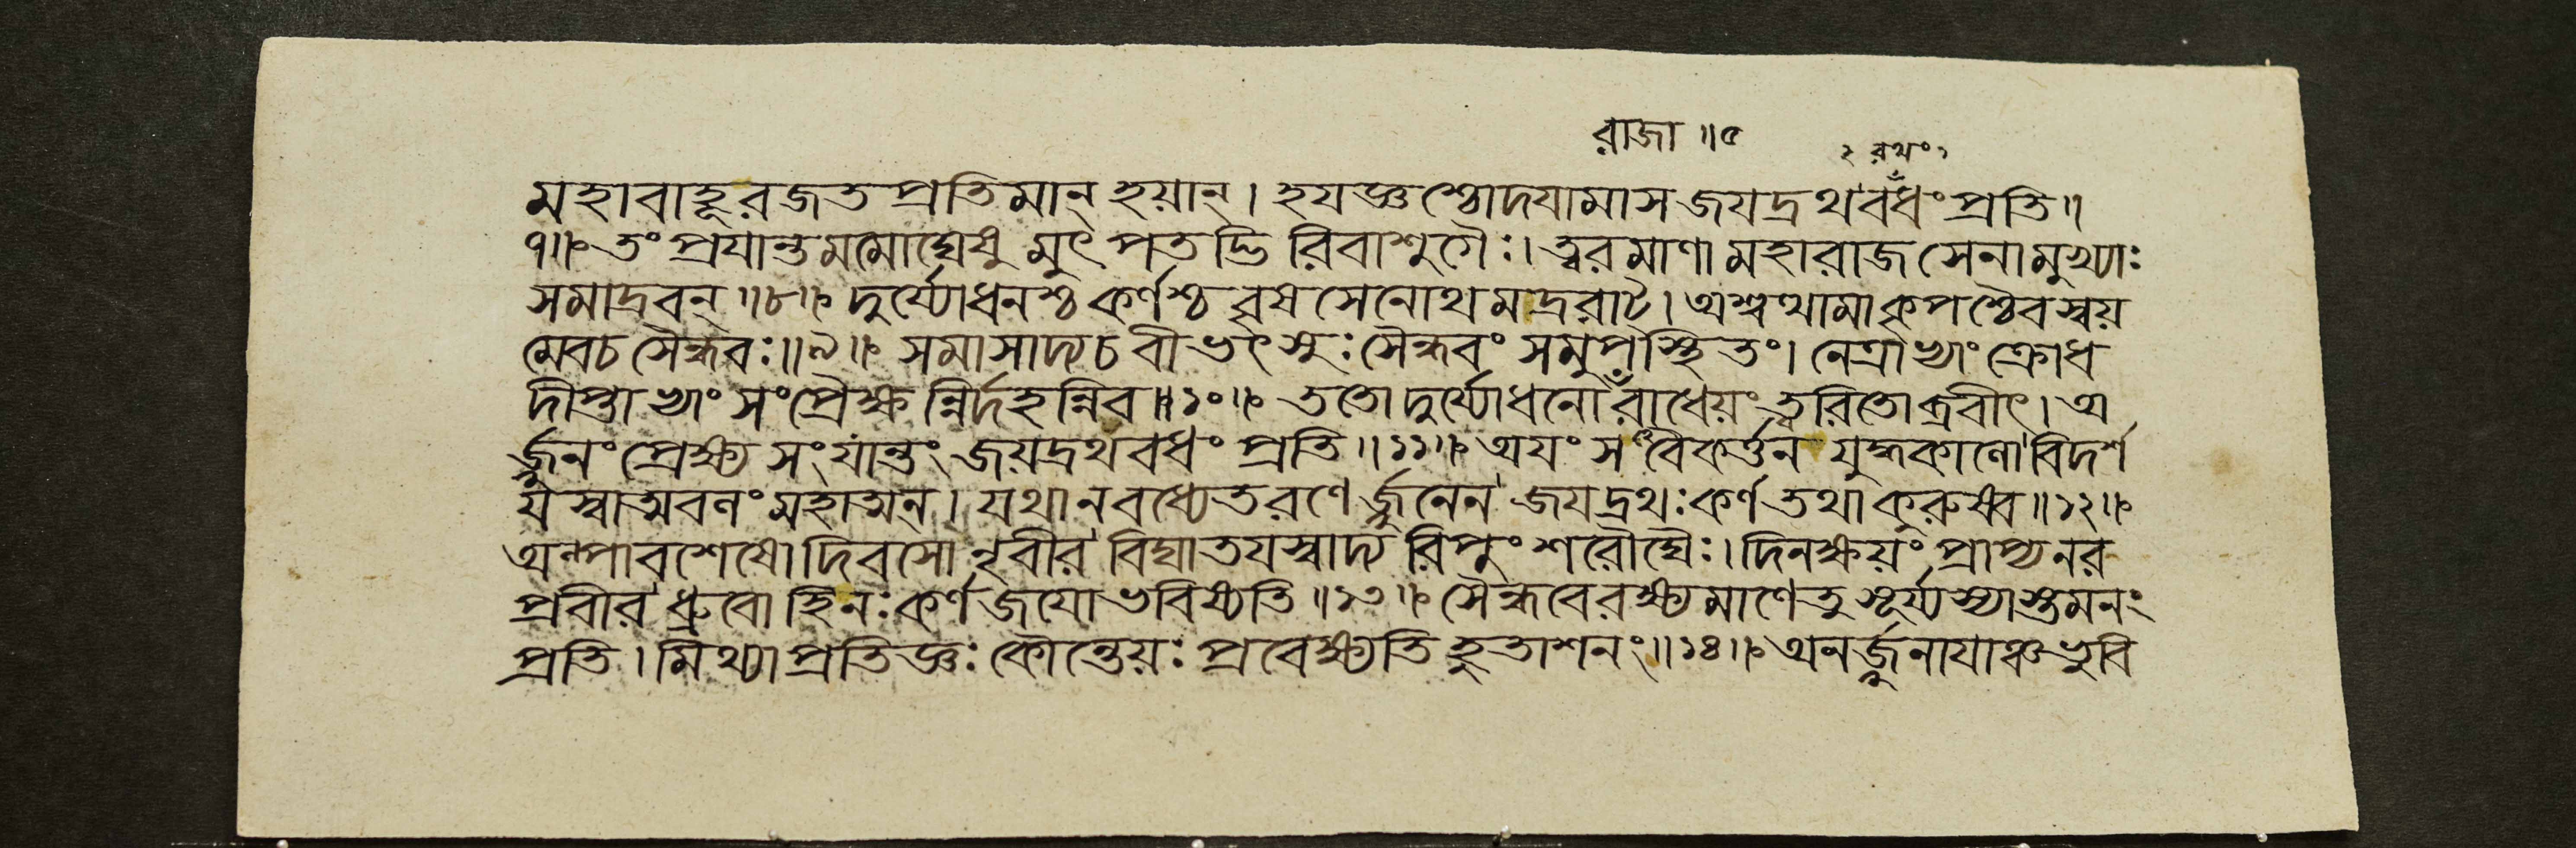 রাজা ॥ ৫
২ রথং ২
মহাবাহূরজতপ্রতিমান্ হয়ান্। হযজ্ঞশ্চোদযামাস জযদ্রথবধং প্রতি॥
৭॥ তং প্রযান্তমমোঘেষু মুৎপতদ্ভিরিবাশুগৈঃ। ত্বরমাণা মহারাজ সেনামুখ্যাঃ
সমাদ্রবন্॥৮॥ দুর্য্যোধনশ্চ কর্ণশ্চ বৃষসেনোথ মদ্ররাট্। অশ্বত্থামা কৃপশ্চৈব স্বয়
মেবচ সৈন্ধবঃ॥৯॥ সমাসাদ্য চ বীভৎসুঃ সৈন্ধবং সমুপস্থিতং। নেত্রাভ্যাং ক্রোধ
দীপ্তাভ্যাং সংপ্রৈক্ষন্নির্দহন্নিব॥১০॥ ততো দুর্য্যোধনো রাধেয়ং ত্বরিতোব্রবীৎ। অ
র্জ্জুনং প্রেক্ষ্য সংযান্তং জয়দ্রথবধং প্রতি॥১১॥ অযং স বৈকর্ত্তন যুদ্ধকালো বিদর্শ
যস্বাত্মবলং মহাত্মন্। যথা ন বধ্যেত রণের্জ্জুনেন জযদ্রথঃ কর্ণ তথা কুরুষ্ব॥১২॥
অল্পাবশেষো দিবসো নৃবীর বিঘাতযস্বাদ্য রিপুং শরৌঘৈঃ। দিনক্ষয়ং প্রাপ্য নর
প্রবীর ধ্রুবো হি নঃ কর্ণ জযো ভবিষ্যতি॥১৩॥ সৈন্ধবে রক্ষ্যমাণে তু সূর্য্যস্যাস্তমনং
প্রতি। মিথ্যাপ্রতিজ্ঞঃ কৌন্তেয়ঃ প্রবেক্ষ্যতি হুতাশনং॥১৪॥ অনর্জ্জুনাযাঞ্চ ভুবি